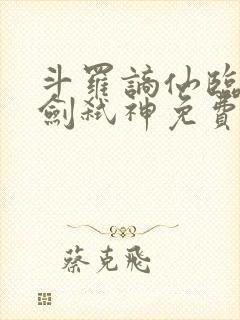 斗羅謫仙臨
劍弒神免費
蔡克飛